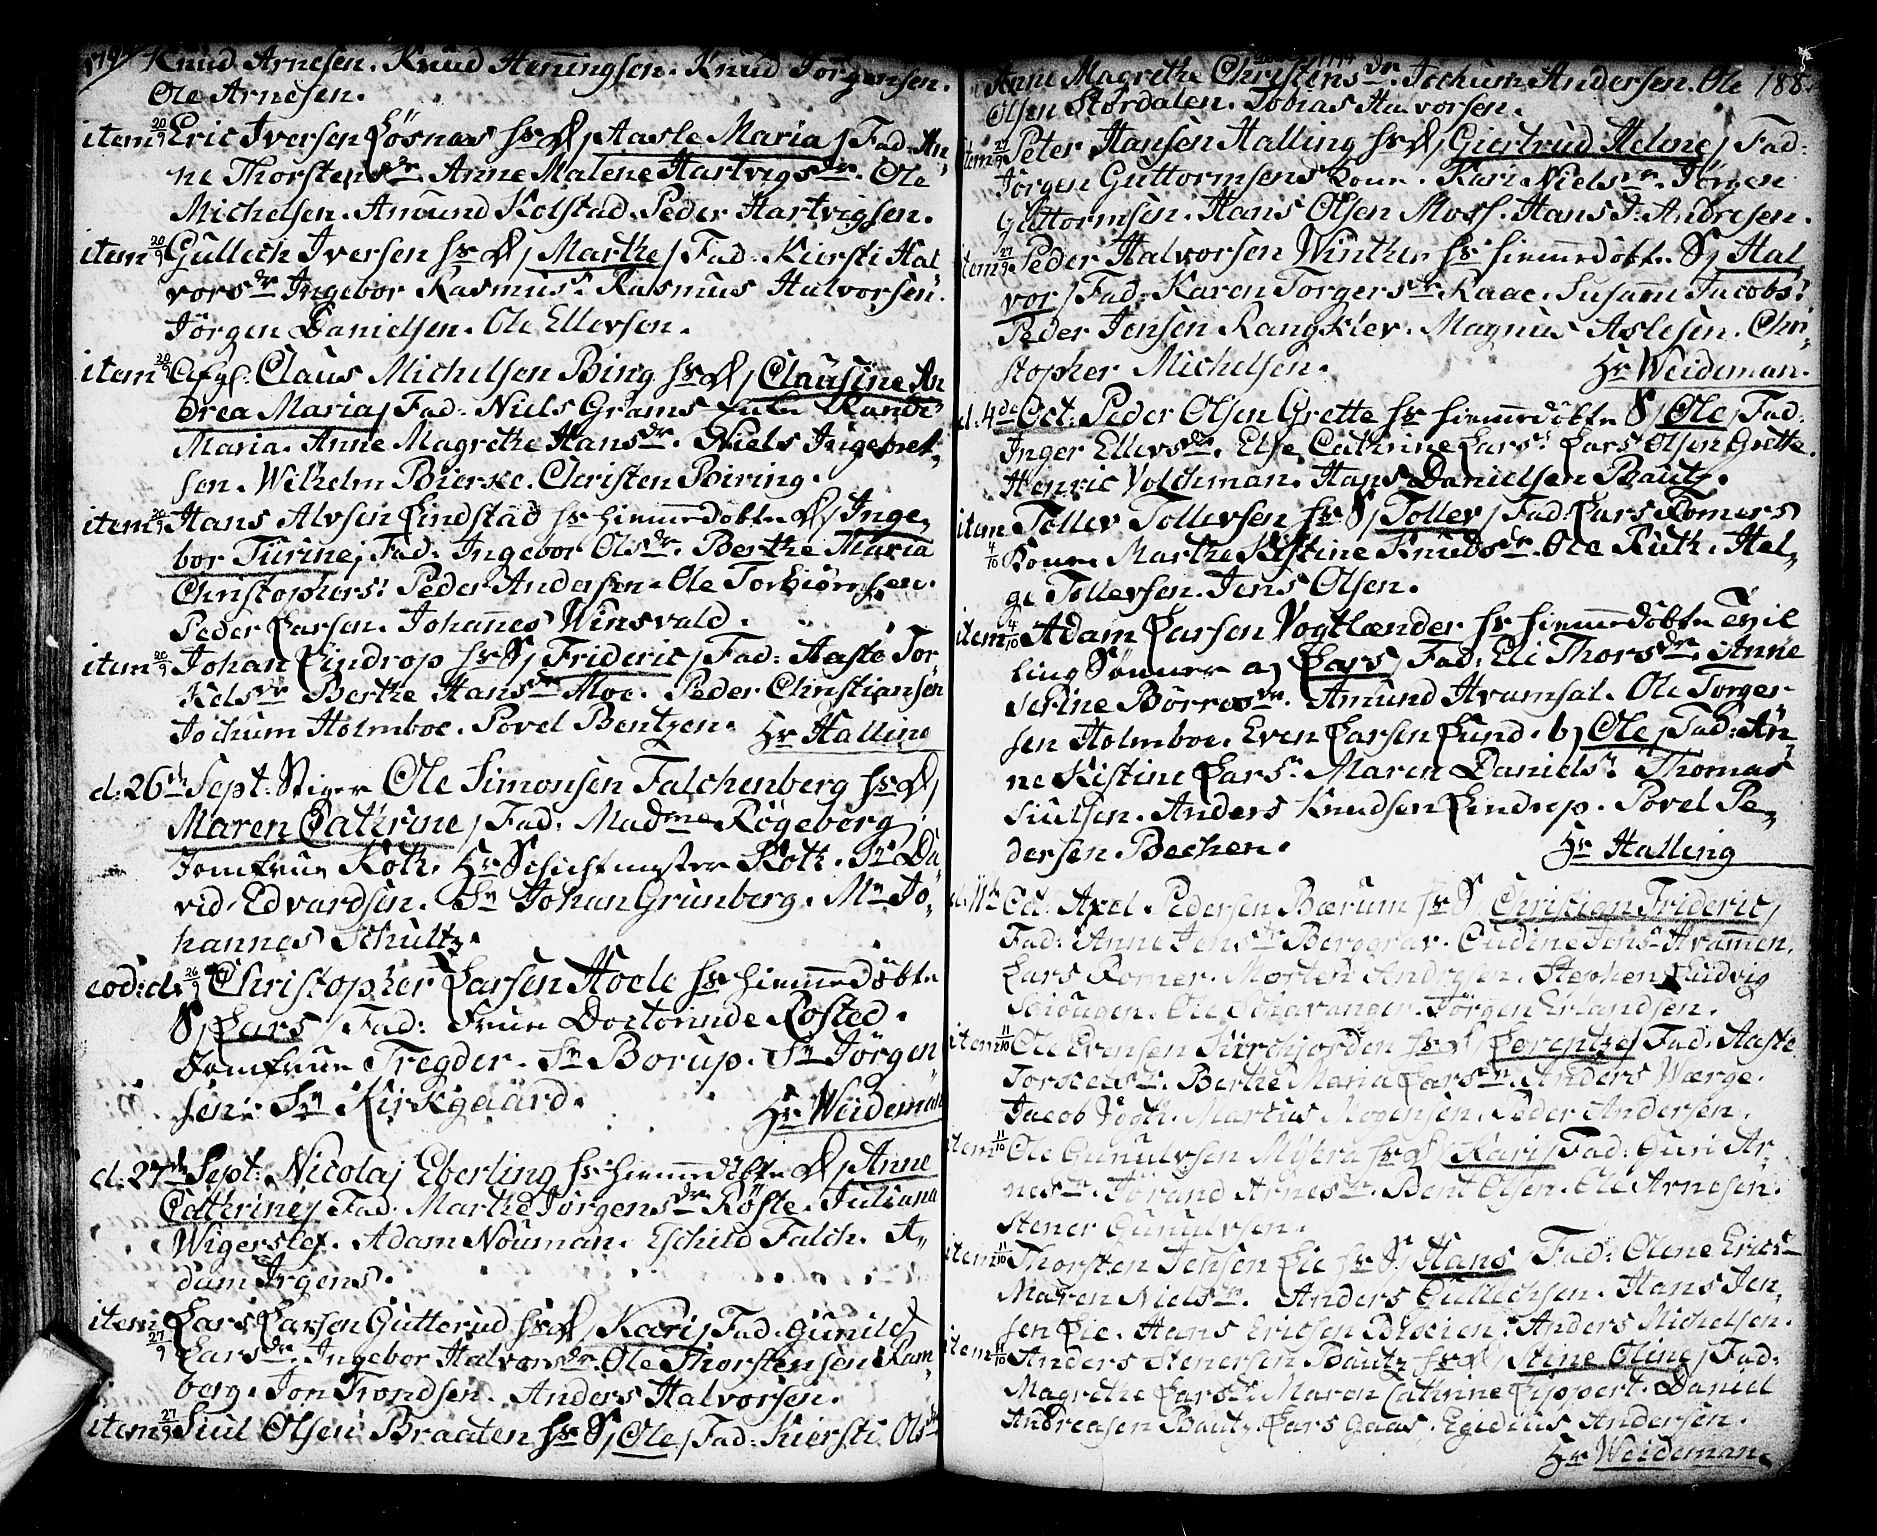 Knud Arnesen. Knud Henningsen. Knud Jörgensen.
Ole Arnesen.
item 20/9 Eric Iversen Lösnæs hs D/ Aasle Maria / Fad: An-
ne Thorstensdr. Anne Malene Hartvigsdr. Ole
Michelsen. Amund Kolstad. Peder Hartvigsen.
item 20/9 Gullech Iversen hs D/ Marthe / Fad: Kiersti Hal
vorsdr Ingebor Rasmus: Rasmus Halvorsen.
Jörgen Danielsen. Ole Ellevsen.
item 20/9 Claus Michelsen Bing hs D/ Clausine An
drea Maria / Fad: Niels Grams Randi
Maria. Anne Magrethe Hansdr. Niels Ingebret-
sen. Wilhelm Biersee. Christen Biring.
item 20/9 Hans Alvsen Lindstad hs hiemmedöbte D/ Inge-
bor Turine / Fad: Ingebor Olsdr. Berthe Maria
Christophers: Peder Andersen. Ole Torbiörnsen.
Peder Larsen. Johannes Winsvald.
item 20/9 Johan Lindrop hs S/ Frideric / Fad: Aaste Tor-
kelsdr Berthe Hansdr Moe. Peder Christiansen
Jochum Holmboe. Povel Bentzen. Hr Halling
d: 26de Sept: Stiger Ole Simonsen Falchenberg hs D/
Maren Cathrine / Fad: Madme Rögeberg
Jomfrue Roth. Hr Schichtmester Roth. Sr Da-
vid Edvardsen. Sr Johan Grünberg. Mr Jo-
hannes Schultz.
eod: d: 26/9 Christopher Larsen Hoele hs hiemmedöbte
S/ Lars / Fad: Frue Doctorinde Rosted.
Jomfrue Tregder. Sr Borup. Sr Jörgen
sen. Sr Kirkgaard. Hr Weideman
d: 27de Sept: Nicolaj Eberling hs hiemmedöbte D/ Anne
Cathrine / Fad: Marthe Jörgensdr Röste. Juliana
Wigerslef. Adam Nouman. Eschild Falch. A-
dam Irgens.
item 27/9 Lars Larsen Gutterud hs D/ Kari / Fad: Gunild
Larsdr. Ingebor Halvorsdr. Ole Thorstensen Ram-
berg. Jon Trondsen. Anders Halvorsen.
item 27/9 Siul Olsen Braaten hs S/ Ole / Fad: Kiersti Olsdr
Anne Magrethe Christensdr. Jochum Andersen. Ole 188.
Olsen Stördalen. Tobias Halvorsen.
item 27/9 Peter Hansen Halling hs D/ Giertrud Helene / Fad:
Jörgen Guttormsens Kone. Kari Nielsdr. Jörgen
Guttormsen. Hans Olsen Moss. Hans J: Andresen.
item 27/9 Peder Halvorsen Winther hs hiemmedöbte S/ Hal
vor / Fad: Karen Torgersdr Kaae. Susanne Jacobs:
Peder Jensen Rangklev. Magnus Aslesen. Chri-
stopher Michelsen. Hr Weideman.
d: 4de Oct: Peder Olsen Grette hs hiemmedöbte S/ Ole / Fad:
Inger Ellevsdr. Else Cathrine Lars: Lars Olsen Grette.
Henric Volchman. Hans Danielsen Bautz.
item 4/10 Tollev Tollevsen hs S/ Tollev / Fad: Lars Romers
Kone. Marthe Kistine Knudsdr. Ole Ruth. Hel-
ge Tollevsen. Jens Olsen.
item 4/10 Adam Larsen Vogtlænder hs hiemmedöbte Tvil
ling Sönner a) Lars / Fad: Eli Thorsdr. Anne
Serine Börresdr. Amund Hvamsal. Ole Torger
sen Holmboe. Even Larsen Lund. b) Ole / Fad: An-
ne Kistine Larsdr. Maren Daniels: Thomas
Siulsen. Anders Knudsen Lindrop. Povel Pe-
dersen Bechen. Hr Halling
d: 11te Oct: Axel Pedersen Bærum hs S/ Christian Frideric /
Fad: Anne Jensdr Berggrav. Gudine Jens: Hvammen.
Lars Romer. Morten Andresen. Stephen Ludvig
Ole Schavanger. Jörgen Erlandsen.
item 11/10 Ole Evensen Kirchjorden hs D/ Lorentze / Fad: Aaste
Torsteensdr. Berthe Maria Larsdr. Anders Værge.
Jacob Vogth. Marcus Mogensen. Peder Andersen.
item 11/10 Ole Gunulvsen Myhra hs D/ Kari / Fad: Guri Ar-
nesdr. Törand Arnesdr. Bent Olsen. Ole Arnesen.
Stener Gunulvsen.
item 11/10 Thorsten Jensen Lie hs S/ Hans Fad: Olene Erics:
Maren Nielsdr. Anders Gullichsen. Hans Jen-
sen Lie. Hans Ericsen. Anders Michelsen.
item 11/10 Anders Stenersen Bautz hs D/ Stine Oline / Fad:
Magrethe Larsdr. Maren Cathrine Lippert. Daniel
Andreasen Bautz. Lars Gaas. Egidius Andersen.
Hr Weideman.